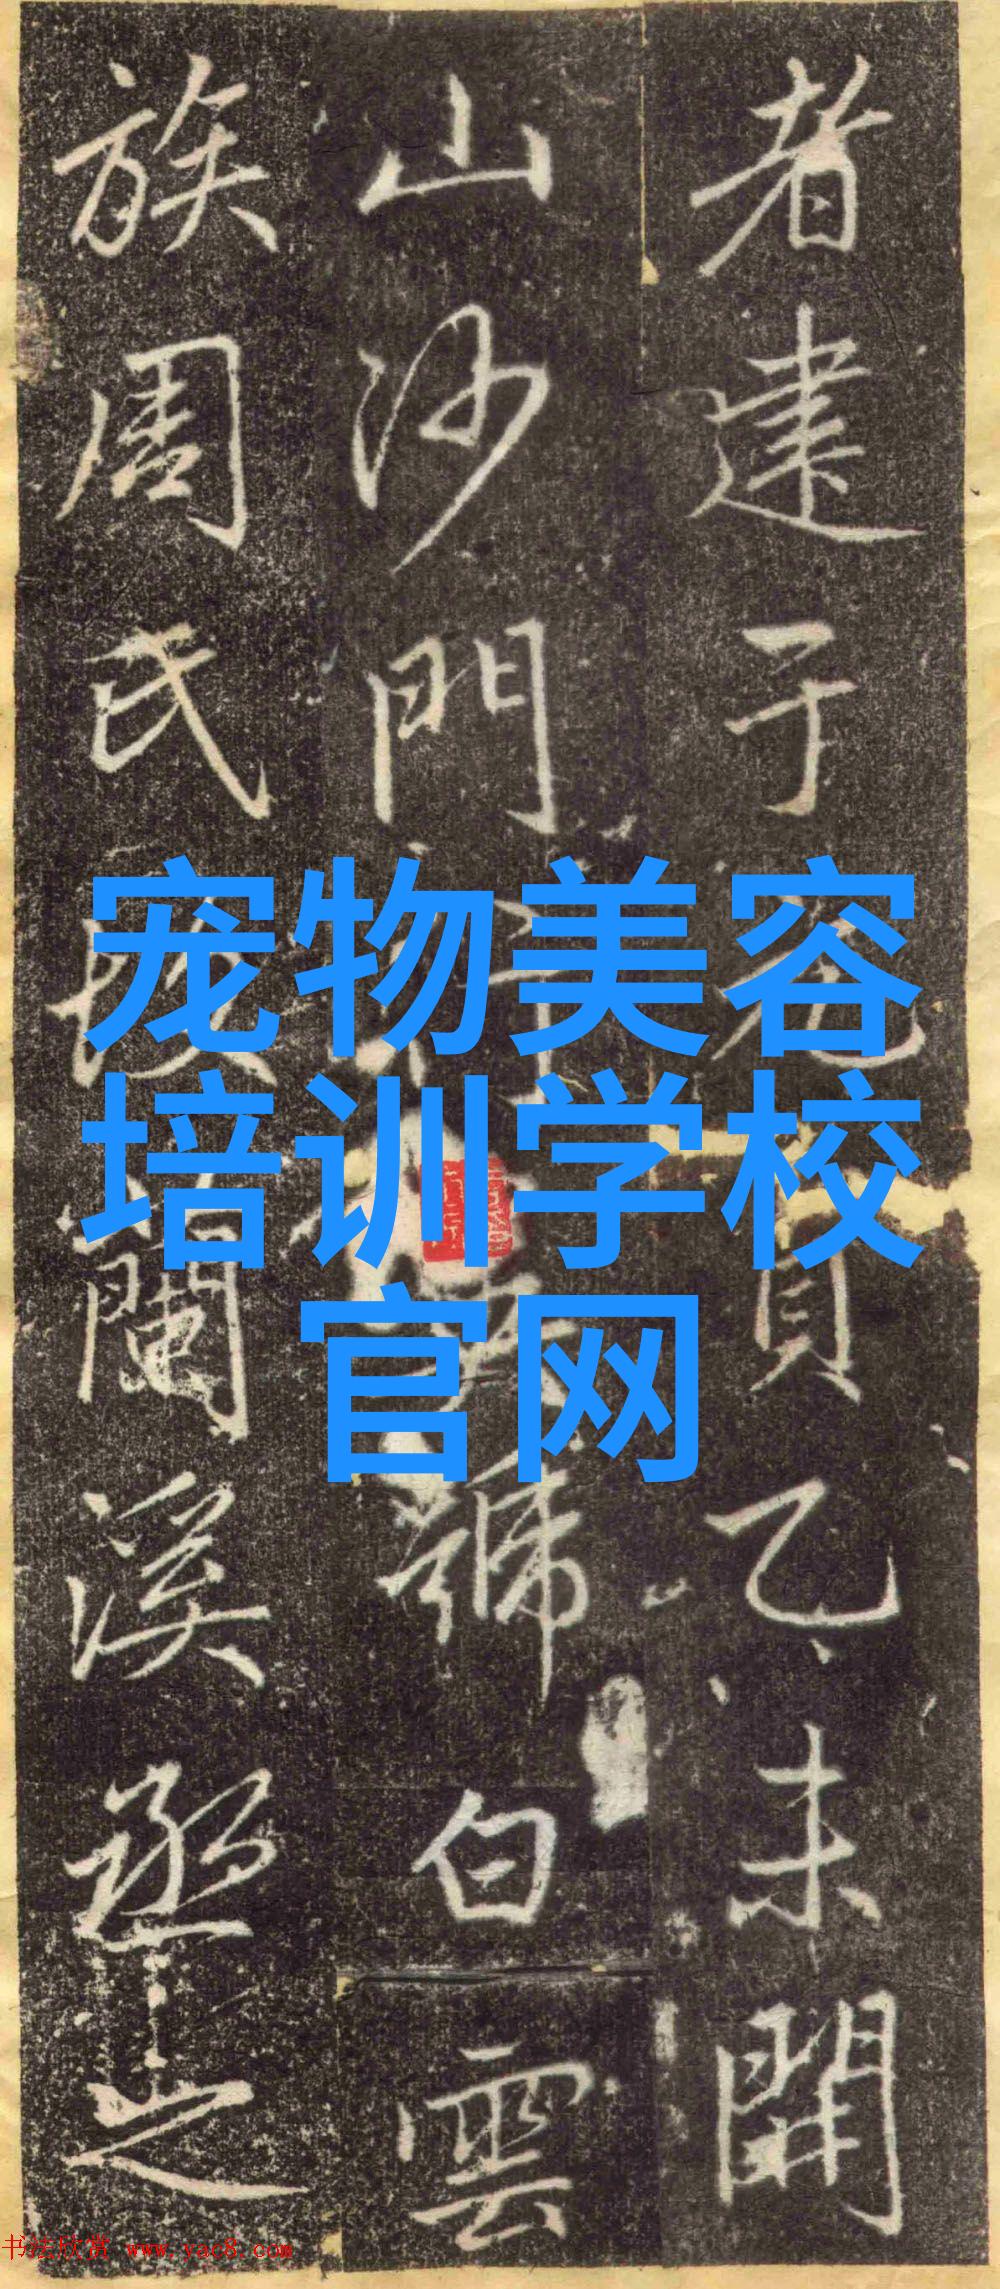 者建子
貟乙未開
山沙門
号白雲
族周氏
蘭溪
之
宠物美容
培训学校
官网
书法欣赏 www.yac8.com